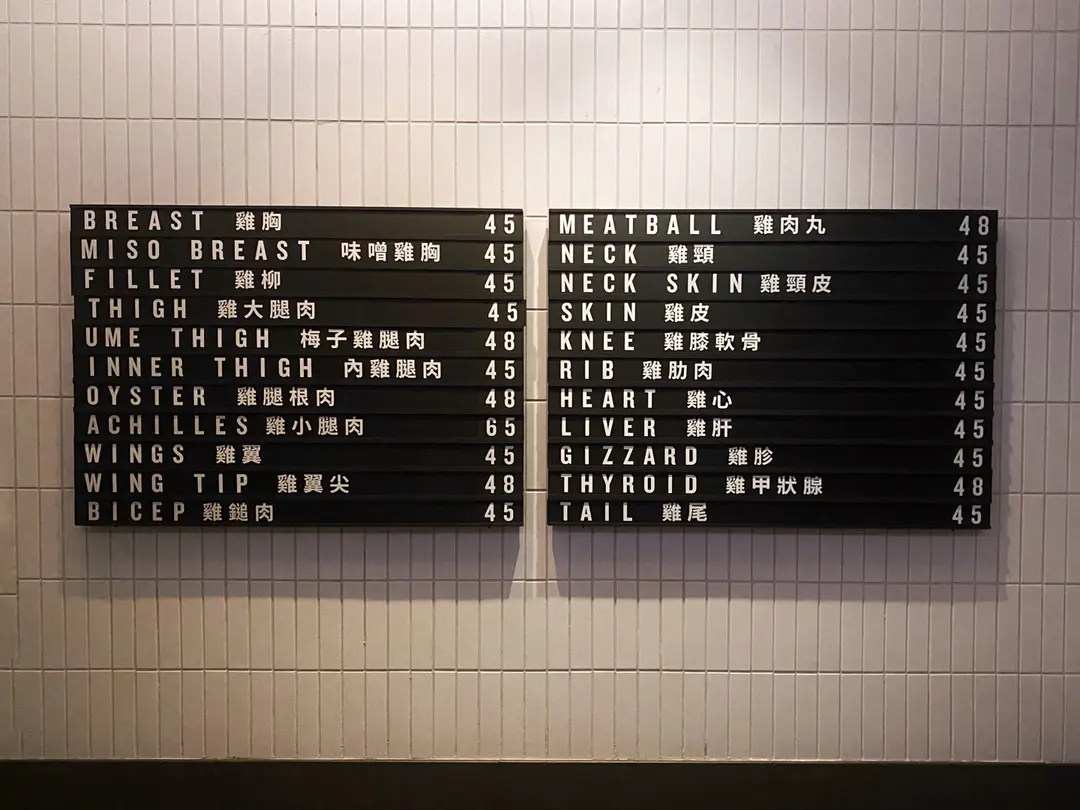 BREAST 雞胸 45
MISO BREAST 味噌雞胸 45
FILLET 雞柳 45
THIGH 雞大腿肉 45
UME THIGH 梅子雞腿肉 48
INNER THIGH 內雞腿肉 45
OYSTER 雞腿根肉 48
ACHILLES 雞小腿肉 65
WINGS 雞翼 45
WING TIP 雞翼尖 48
BICEP 雞鎚肉 45
MEATBALL 雞肉丸 48
NECK 雞頸 45
NECK SKIN 雞頸皮 45
SKIN 雞皮 45
KNEE 雞膝軟骨 45
RIB 雞肋肉 45
HEART 雞心 45
LIVER 雞肝 45
GIZZARD 雞胗 45
THYROID 雞甲狀腺 48
TAIL 雞尾 45